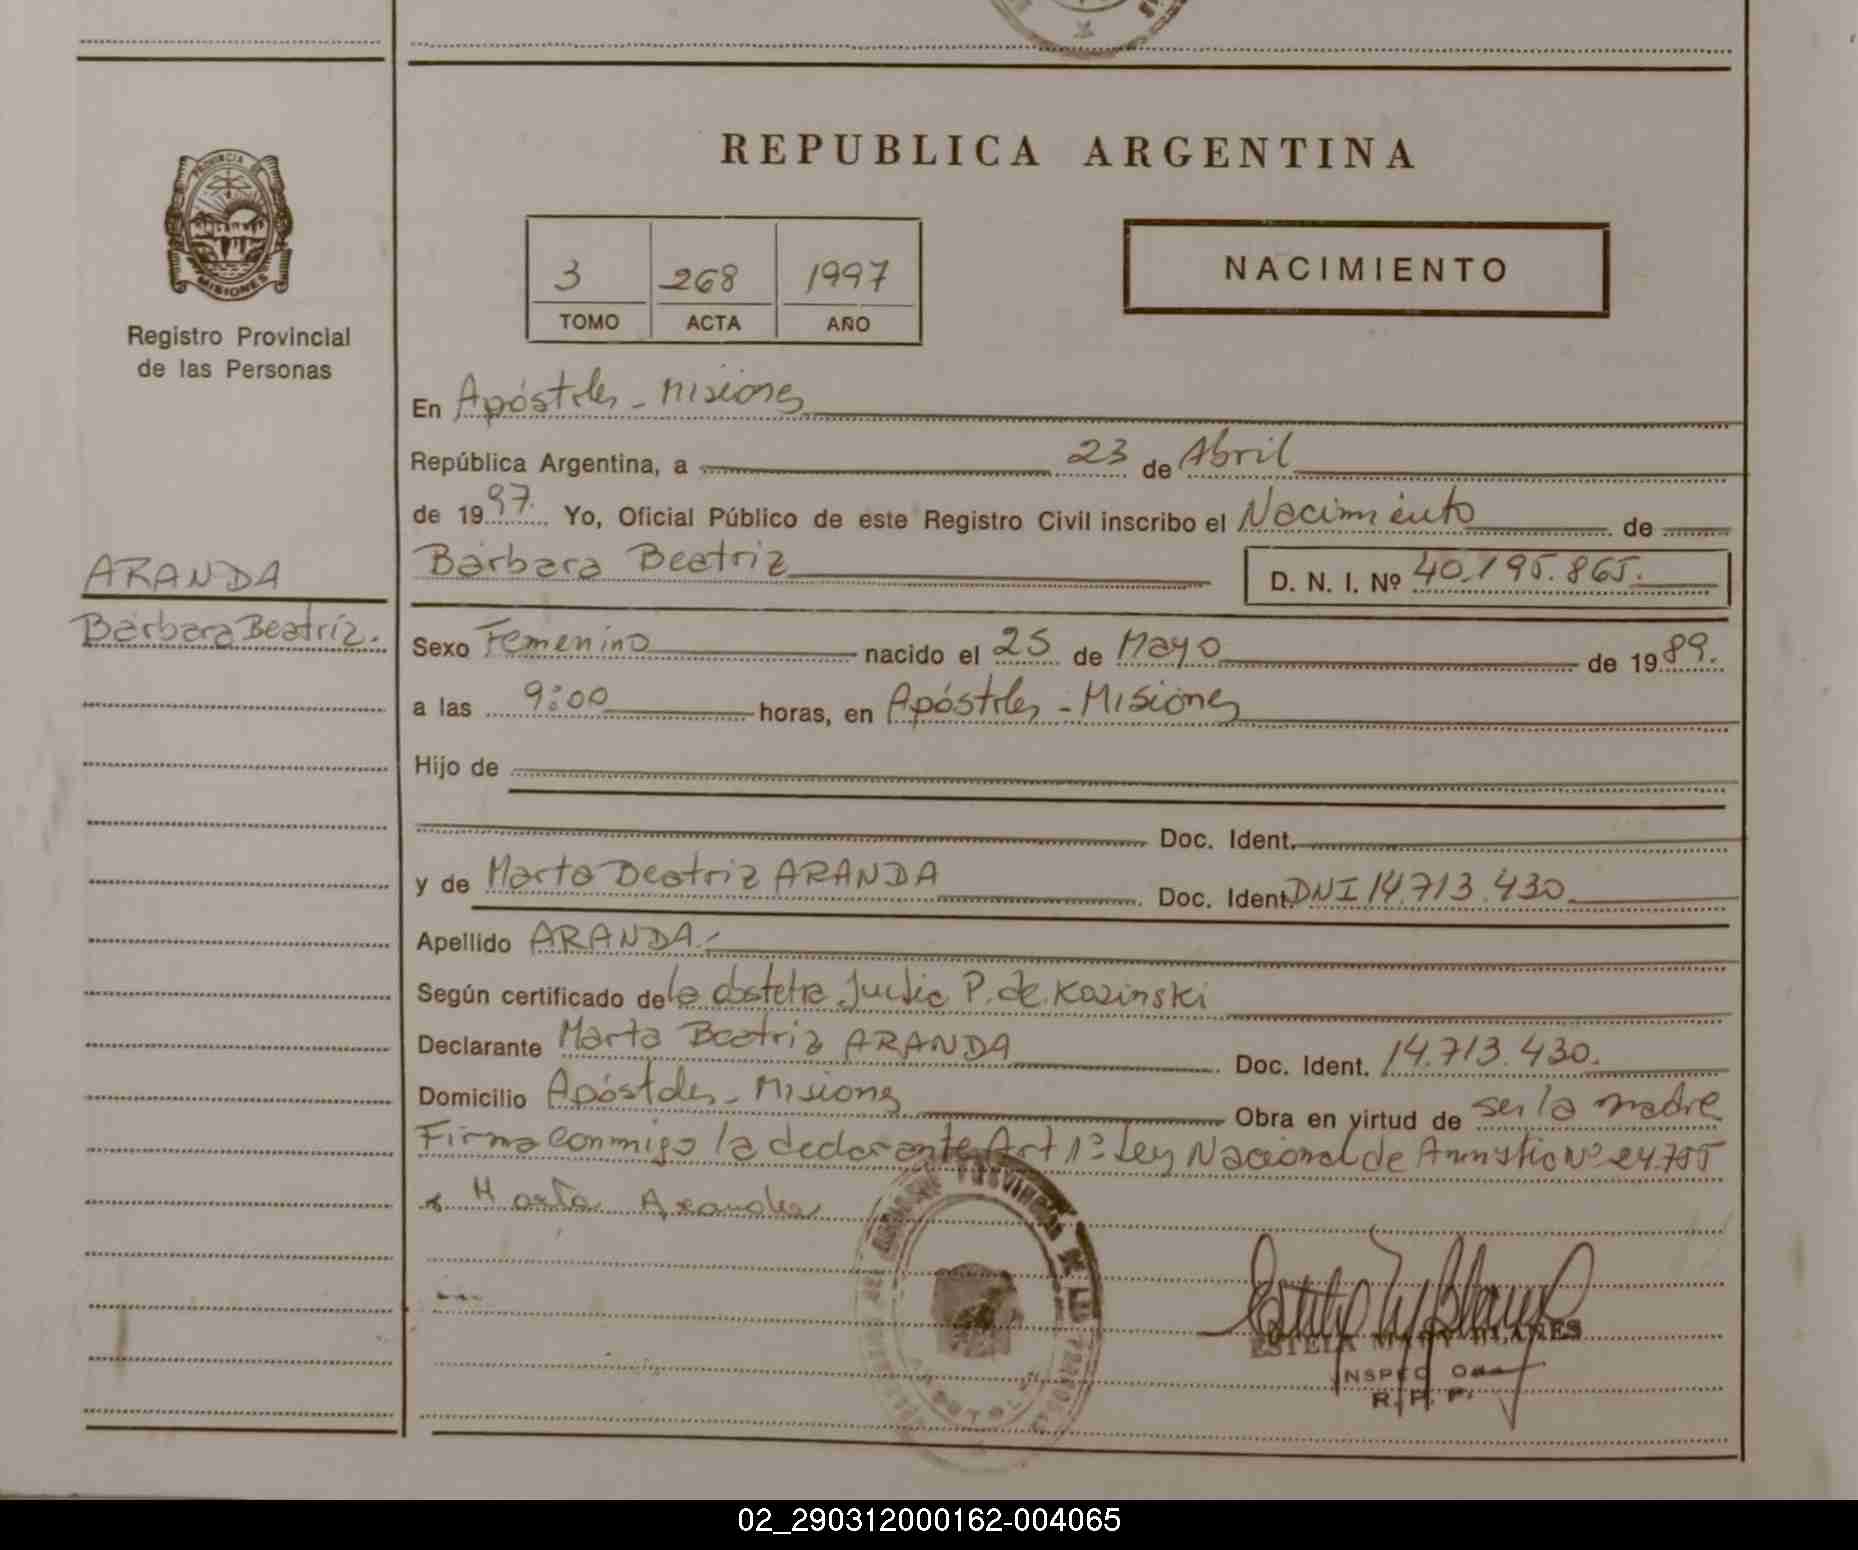 REPUBLICA ARGENTINA
PROVINCIA DE
MISIONES
Registro Provincial
de las Personas
3 268 1997
TOMO ACTA AÑO
NACIMIENTO
En Apóstoles - Misiones
República Argentina, a 23 de Abril
de 1997. Yo, Oficial Público de este Registro Civil inscribo el Nacimiento de
Bárbara Beatriz D. N. I. Nº 40.195.865.
ARANDA
Bárbara Beatriz.
Sexo Femenino nacido el 25 de Mayo de 1989.
a las 9:00 horas, en Apóstoles - Misiones
Hijo de
Doc. Ident.
y de Marta Beatriz ARANDA Doc. Ident. DNI 14.713.430
Apellido ARANDA.-
Según certificado de la obstetra Julia P. de Kozinski
Declarante Marta Beatriz ARANDA Doc. Ident. 14.713.430.
Domicilio Apóstoles - Misiones Obra en virtud de ser la madre
Firma conmigo la declarante Art 1º Ley Nacional de Amnistia Nº 24.755
x Marta Aranda
ESTELA MARY BLANES
R. P. P.
02_290312000162-004065